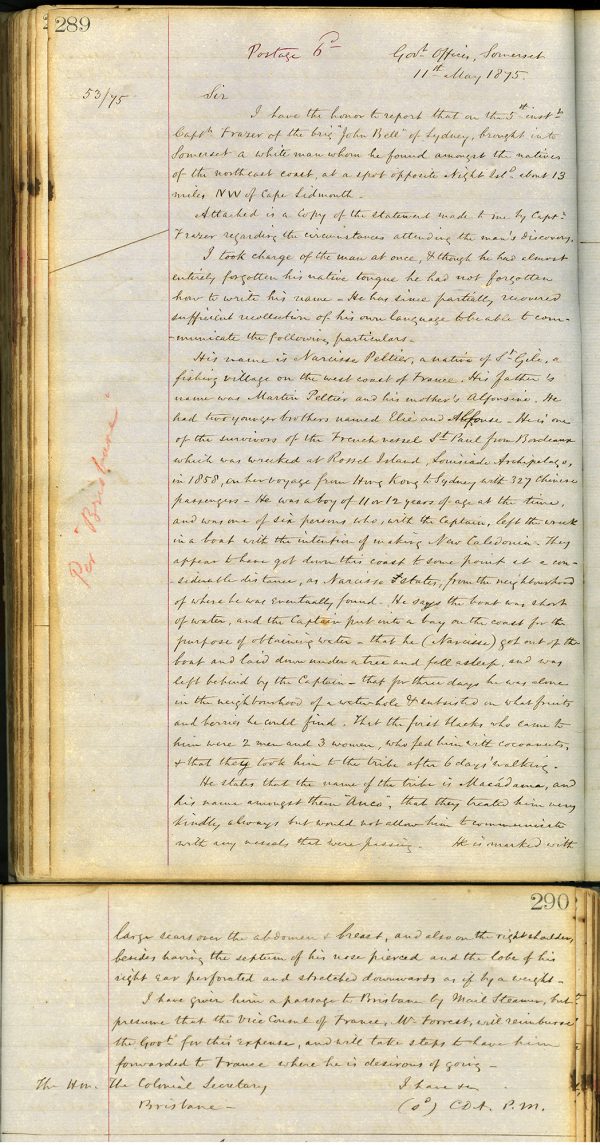 289
Postage 6d
Govt Offices, Somerset
11th May 1875
53/75
Sir
I have the honor to report that on the 5th inst
Captn Frazer of the brig "John Bell" of Sydney, brought into
Somerset a white man whom he found amongst the natives
of the northeast coast, at a spot opposite Night Isld about 13
miles NW of Cape Sidmouth –
Attached is a copy of the statement made to me by Captn
Frazer regarding the circumstances attending the man's discovery.
I took charge of the man at once, & though he had almost
entirely forgotten his native tongue he had not forgotten
how to write his name – He has since partially recovered
sufficient recollection of his own language to be able to com-
-municate the following particulars –
His name is Narcisse Peltier, a native of St Gile, a
fishing village on the west coast of France. His father's
name was Martin Peltier and his mother's Alfonsine. He
had two younger brothers named Elie and Alfonse – He is one
of the survivors of the French vessel St Paul from Bordeaux
which was wrecked at Rossel Island, Louisiade Archipelago,
in 1858, on her voyage from Hong Kong to Sydney with 327 Chinese
passengers – He was a boy of 11 or 12 years of age at the time,
and was one of six persons who, with the Captain, left the wreck
in a boat with the intention of making New Caledonia – They
appear to have got down this coast to some point at a con-
-siderable distance, as Narcisse states, from the neighbourhood
of where he was eventually found – He says the boat was short
of water, and the Captain put into a bay on the coast for the
purpose of obtaining water – that he (Narcisse) got out of the
boat and laid down under a tree and fell asleep, and was
left behind by the Captain – that for three days he was alone
in the neighbourhood of a waterhole & subsisted on what fruits
and berries he could find. That the first blacks who came to
him were 2 men and 3 women, who fed him with cocoanuts,
& that they took him to the tribe after 6 days' walking.
He states that the name of the tribe is Macádama, and
his name amongst them "Anco", that they treated him very
kindly always but would not allow him to communicate
with any vessels that were passing. He is marked with
Per "Brisbane"
290
large scars over the abdomen & breast, and also on the right shoulder,
besides having the septum of his nose pierced and the lobe of his
right ear perforated and stretched downwards as if by a weight –
I have given him a passage to Brisbane by Mail Steamer, but
presume that the Vice Consul of France, Mr Forrest, will reimburse
the Govt for this expense, and will take steps to have him
forwarded to France where he is desirous of going –
The Hon. The Colonial Secretary
I have &c
Brisbane –
(sd) C D'A. P.M.